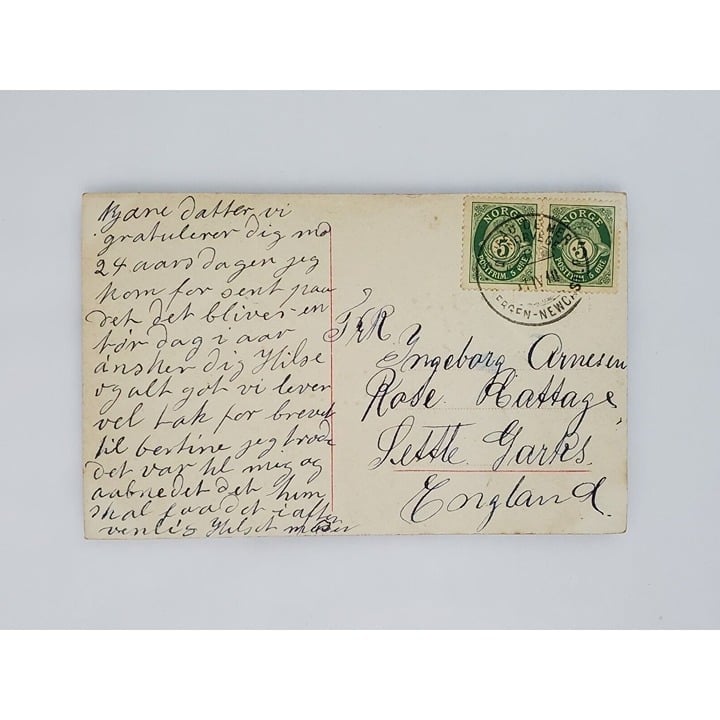 kjæne datter vi
gratulerer dig me
24 aarsdagen jeg
kom for sent paa
det det bliver en
tør dag i aar
ånsker dig Hilse
og alt got vi lever
vel tak for brevet
til bertine jeg trode
det var til meg og
aabnedet det hun
skal faa det i aften
venlig Hilset moder
NORGE
5
POSTFRIM. 5 ØRE
NORGE
5
POSTFRIM. 5 ØRE
BERGEN-NEWCAS
Frk
Ingeborg Arnesen
Rose Kattage
Settle Garks
England